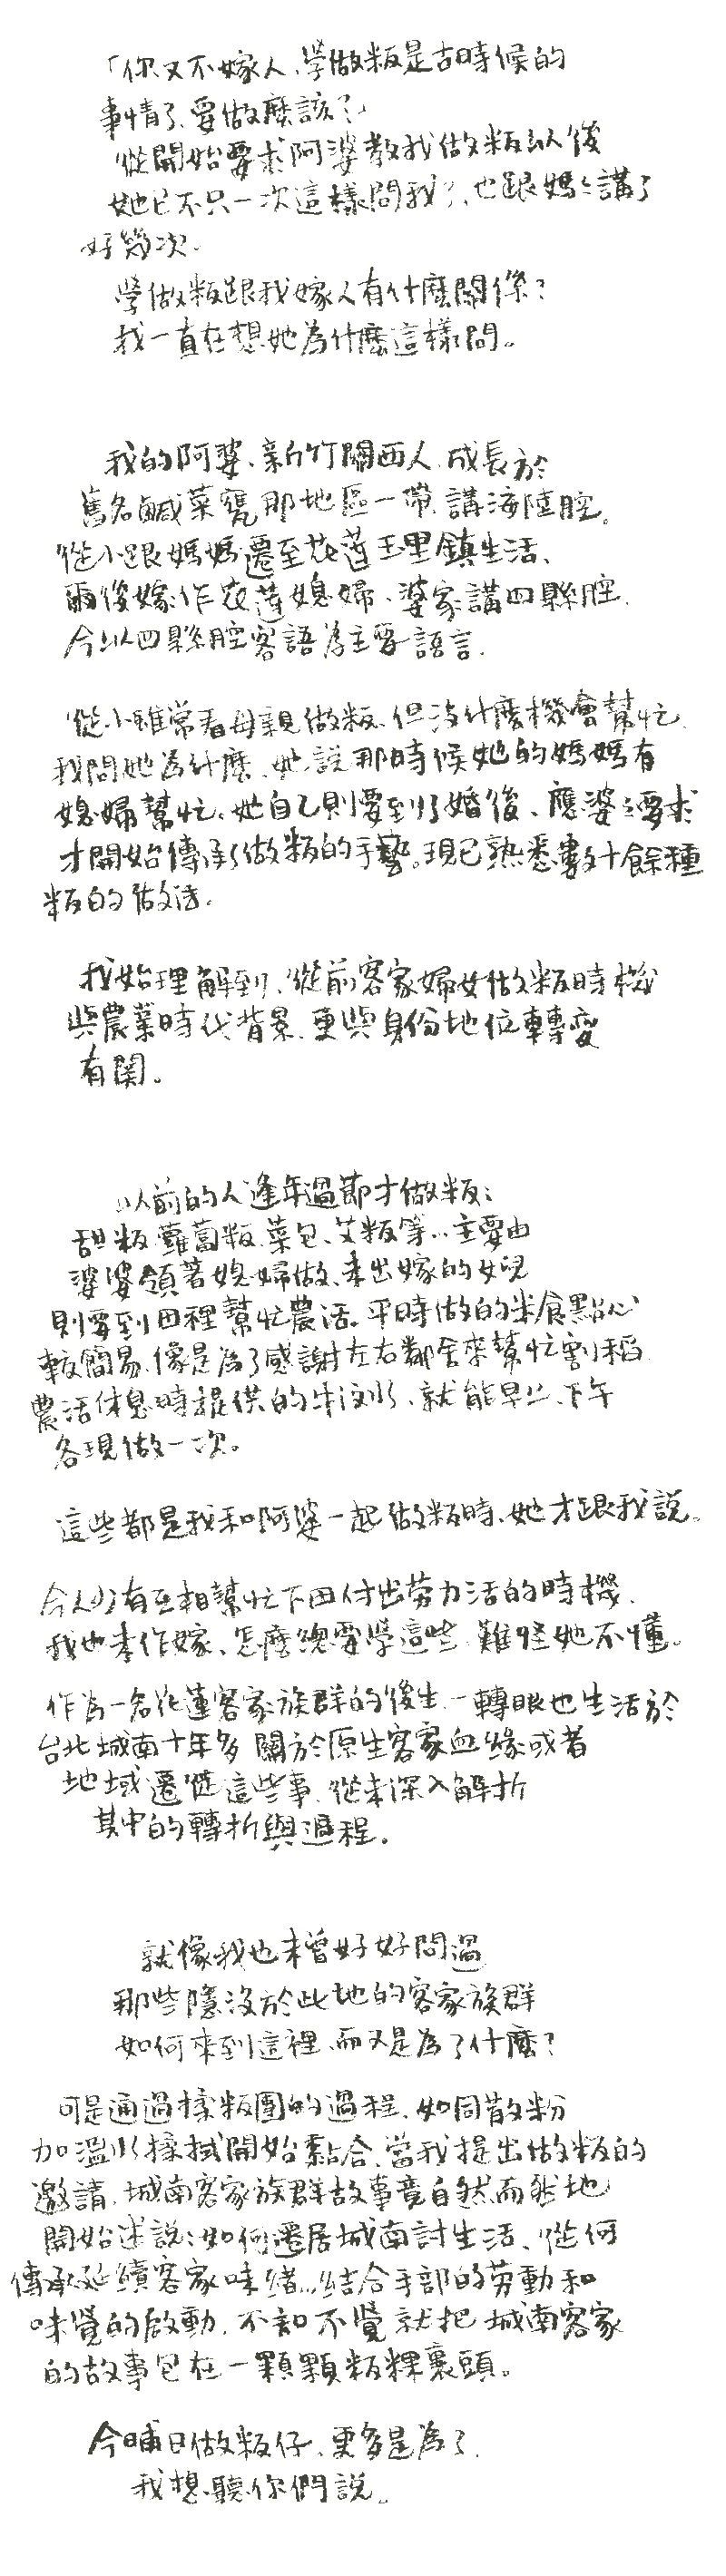 「你又不嫁人、學做粄是古時候的
事情了、要做麼該?」
從開始要求阿婆教我做粄以後
她已不只一次這樣問我了、也跟媽媽講了
好幾次。
學做粄跟我嫁人有什麼關係?
我一直在想她為什麼這樣問。
我的阿婆、新竹關西人、成長於
舊名鹹菜甕那地區一帶、講海陸腔。
從小跟媽媽遷至花蓮玉里鎮生活、
爾後嫁作花蓮媳婦、婆家講四縣腔、
今以四縣腔客語為主要語言.
從小雖常看母親做粄、但沒什麼機會幫忙、
我問她為什麼、她說那時候她的媽媽有
媳婦幫忙。她自己則要到了婚後、應婆婆要求
才開始傳承了做粄的手藝。現已熟悉數十餘種
粄的做法。
我始理解到、從前客家婦女做粄時機
與農業時代背景、更與身份地位轉變
有関。
以前的人逢年過節才做粄:
甜粄、蘿蔔粄、菜包、艾粄等…主要由
婆婆領著媳婦做、未出嫁的女兒
則要到田裡幫忙農活。平時做的米食點心
較簡易、像是為了感謝左右鄰舍來幫忙割稻、
農活休息時提供的牛汶水、就能早上、下午
各現做一次。
這些都是我和阿婆一起做粄時、她才跟我說。
今人少有互相幫忙下田付出勞力活的時機、
我也未作嫁、怎麼總要學這些、難怪她不懂。
作為一名花蓮客家族群的後生、一轉眼也生活於
台北城南十年多、關於原生客家血緣或者
地域遷徙這些事、從未深入解析
其中的轉折與過程.
就像我也未曾好好問過
那些隱沒於此地的客家族群
如何來到這裡、而又是為了什麼?
可是通過揉粄團的過程、如同散粉
加溫水揉拭開始黏合、當我提出做粄的
邀請、城南客家族群故事竟自然而然地
開始述說:如何遷居城南討生活、從何
傳承延續客家味緒…結合手部的勞動和
味覺的啟動、不知不覺就把城南客家
的故事包在一顆顆粄粿裏頭。
今晡日做粄仔、更多是為了、
我想聽你們說。